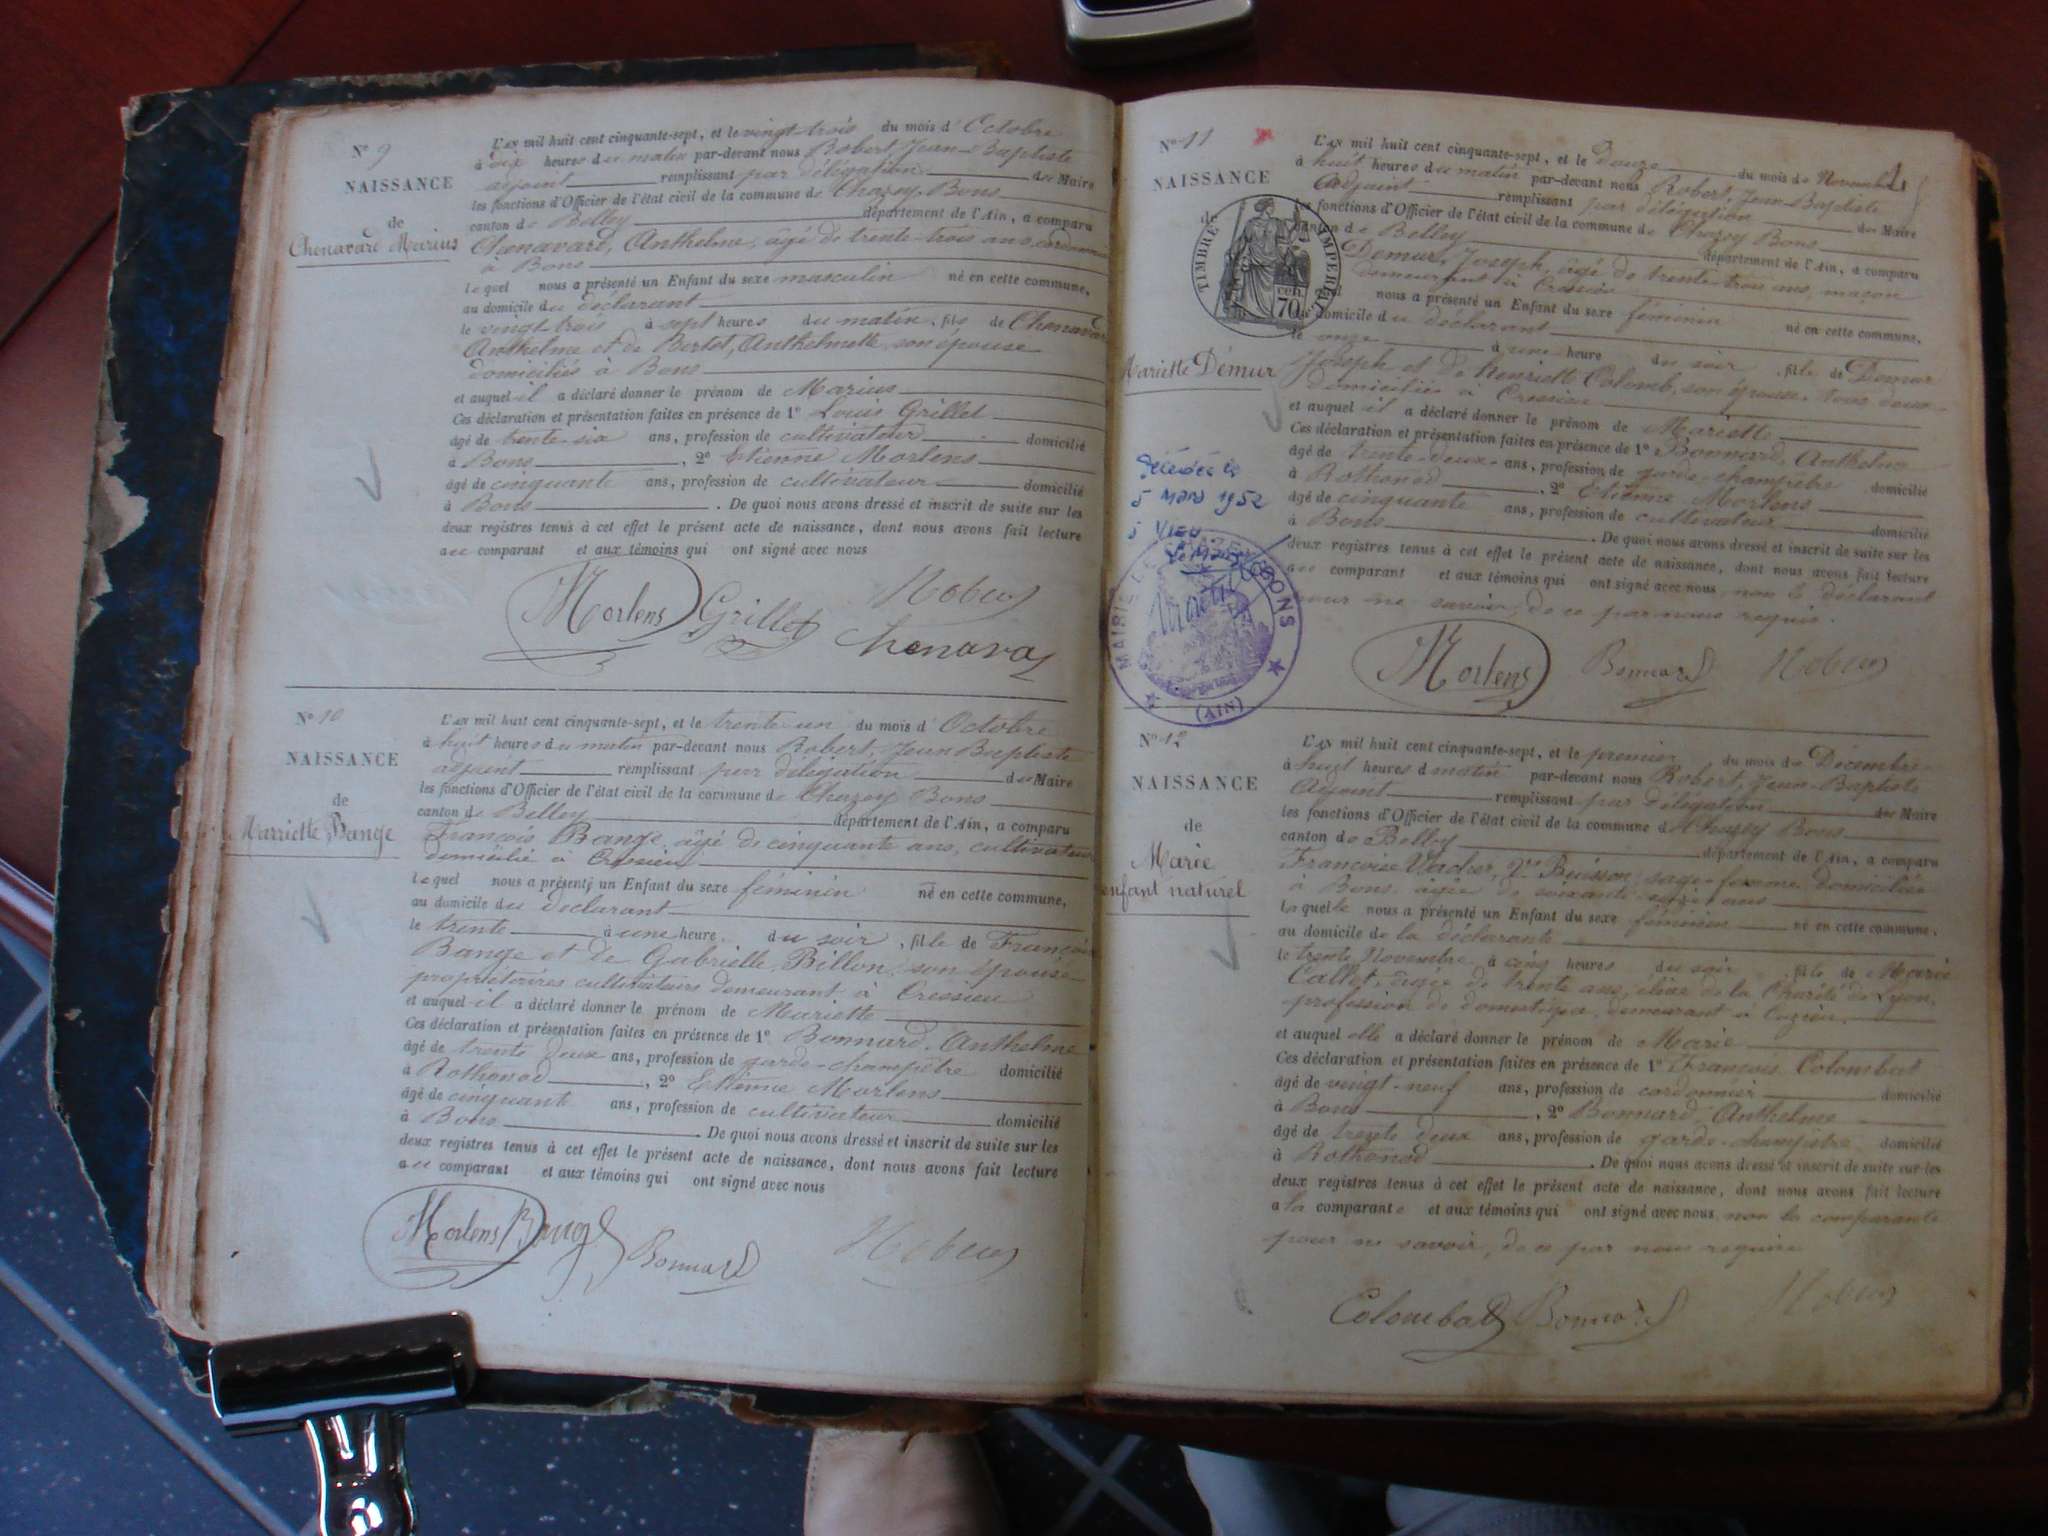 N° 9
NAISSANCE
de
Chenavard Marius
L'an mil huit cent cinquante-sept, et le vingt-trois du mois d'Octobre
à dix heures du matin par-devant nous Robert, Jean-Baptiste
adjoint remplissant par délégation du Maire
les fonctions d'Officier de l'état civil de la commune de Chazey Bons
canton de Belley département de l'Ain, a comparu
Chenavard, Anthelme, âgé de trente-trois ans, cordonnier
à Bons
lequel nous a présenté un Enfant du sexe masculin né en cette commune,
au domicile du déclarant
le vingt-trois à sept heures du matin, fils de Chenavard
Anthelme et de Bertet, Anthelmette, son épouse
domiciliés à Bons
et auquel il a déclaré donner le prénom de Marius
Ces déclaration et présentation faites en présence de 1° Louis Grillet
âgé de trente-six ans, profession de cultivateur domicilié
à Bons, 2° Etienne Morlens
âgé de cinquante ans, profession de cultivateur domicilié
à Bons. De quoi nous avons dressé et inscrit de suite sur les
deux registres tenus à cet effet le présent acte de naissance, dont nous avons fait lecture
au comparant et aux témoins qui ont signé avec nous
Morlens Grillet Robert
Chenavard
N° 10
NAISSANCE
de
Marriette Bange
L'an mil huit cent cinquante-sept, et le trente-un du mois d'Octobre
à huit heures du matin par-devant nous Robert, Jean Baptiste
adjoint remplissant par délégation du Maire
les fonctions d'Officier de l'état civil de la commune de Chazey Bons
canton de Belley département de l'Ain, a comparu
François Bange, âgé de cinquante ans, cultivateur
domicilié à Cressieu
lequel nous a présenté un Enfant du sexe féminin né en cette commune,
au domicile du déclarant
le trente à une heure du soir, fille de François
Bange et de Gabrielle Billon, son épouse
propriétaires cultivateurs demeurant à Cressieu
et auquel il a déclaré donner le prénom de Mariette
Ces déclaration et présentation faites en présence de 1° Bonnard, Anthelme
âgé de trente deux ans, profession de garde-champêtre domicilié
à Rothonod, 2° Etienne Morlens
âgé de cinquante ans, profession de cultivateur domicilié
à Bons. De quoi nous avons dressé et inscrit de suite sur les
deux registres tenus à cet effet le présent acte de naissance, dont nous avons fait lecture
au comparant et aux témoins qui ont signé avec nous
Morlens Bange Bonnard Robert
N° 11
NAISSANCE
de
Mariette Démur
TIMBRE IMPÉRIAL
70 cen.
Décédée le
5 Mars 1952
à Vieu
MAIRIE DE CHAZEY-BONS
(AIN)
L'an mil huit cent cinquante-sept, et le douze du mois de Novembre
à huit heures du matin par-devant nous Robert, Jean-Baptiste
Adjoint remplissant par délégation du Maire
les fonctions d'Officier de l'état civil de la commune de Chazey Bons
canton de Belley département de l'Ain, a comparu
Demur, Joseph, âgé de trente-trois ans, maçon
demeurant à Cressieu
nous a présenté un Enfant du sexe féminin né en cette commune,
au domicile du déclarant
le onze à une heure du soir, fille de Demur
Joseph et de Henriette Colomb, son épouse, tous deux
domiciliés à Cressieu
et auquel il a déclaré donner le prénom de Mariette
Ces déclaration et présentation faites en présence de 1° Bonnard, Anthelme
âgé de trente-deux ans, profession de garde-champêtre domicilié
à Rothonod, 2° Etienne Morlens
âgé de cinquante ans, profession de cultivateur domicilié
à Bons. De quoi nous avons dressé et inscrit de suite sur les
deux registres tenus à cet effet le présent acte de naissance, dont nous avons fait lecture
au comparant et aux témoins qui ont signé avec nous, non le déclarant
pour ne savoir, de ce par nous requis.
Morlens Bonnard Robert
N° 12
NAISSANCE
de
Marie
enfant naturel
L'an mil huit cent cinquante-sept, et le premier du mois de Décembre
à huit heures d matin par-devant nous Robert, Jean-Baptiste
Adjoint remplissant par délégation du Maire
les fonctions d'Officier de l'état civil de la commune d Chazey Bons
canton de Belley département de l'Ain, a comparu
Françoise Vacher, Vve Buisson, sage-femme domiciliée
à Bons, âgée de soixante ans
laquelle nous a présenté un Enfant du sexe féminin né en cette commune,
au domicile de la déclarante
le trente Novembre à cinq heures du soir, fille de Marie
Callet, âgée de trente ans, élève de la Charité de Lyon,
profession de domestique, demeurant à Cuzieu
et auquel elle a déclaré donner le prénom de Marie
Ces déclaration et présentation faites en présence de 1° François Colombat
âgé de vingt-neuf ans, profession de cordonnier domicilié
à Bons, 2° Bonnard Anthelme
âgé de trente deux ans, profession de garde-champêtre domicilié
à Rothonod. De quoi nous avons dressé et inscrit de suite sur les
deux registres tenus à cet effet le présent acte de naissance, dont nous avons fait lecture
à la comparante et aux témoins qui ont signé avec nous non la comparante
pour ne savoir, de ce par nous requise
Colombat Bonnard Robert